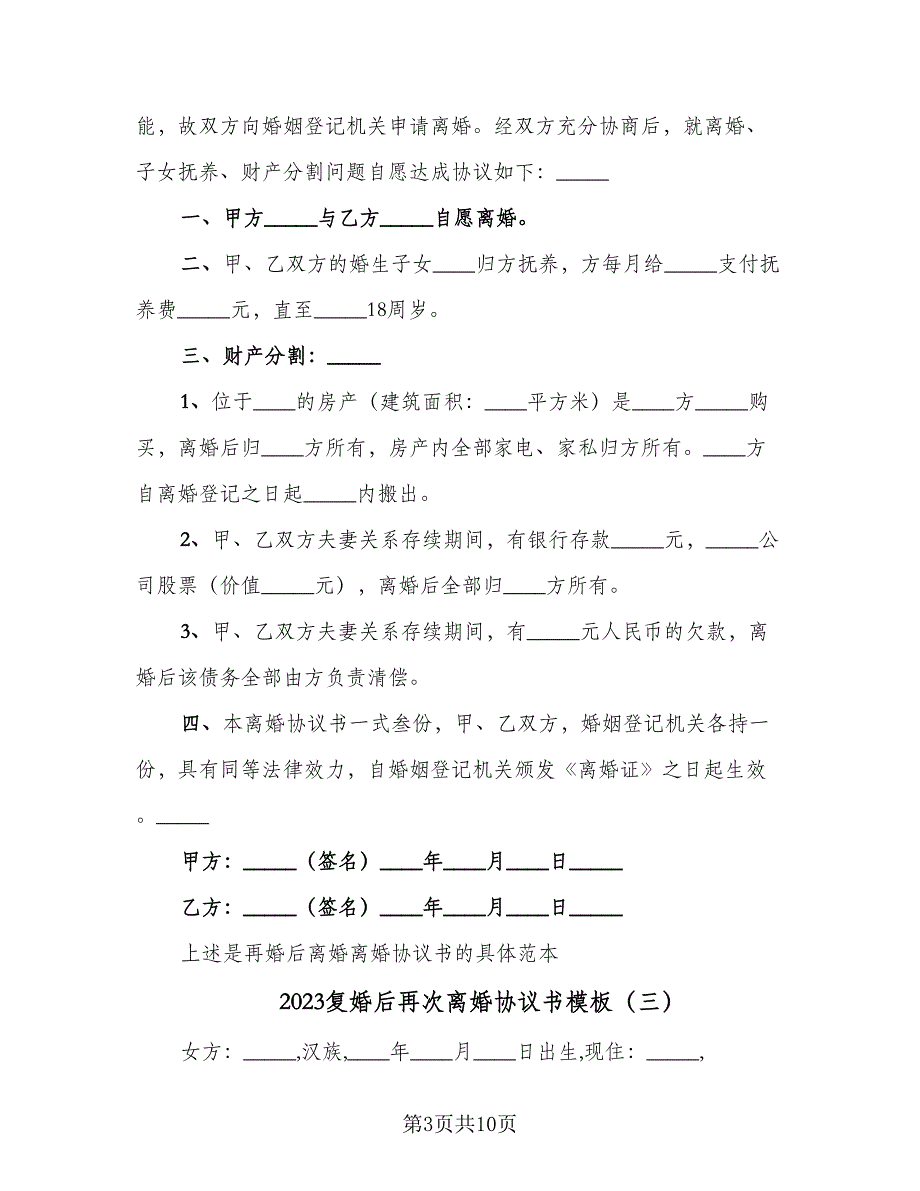 能，故双方向婚姻登记机关申请离婚。经双方充分协商后，就离婚、
子女抚养、财产分割问题自愿达成协议如下：_____
一、甲方_____与乙方_____自愿离婚。
二、甲、乙双方的婚生子女____归方抚养，方每月给_____支付抚
养费_____元，直至_____18周岁。
三、财产分割：_____
1、位于____的房产（建筑面积：____平方米）是____方_____购
买，离婚后归____方所有，房产内全部家电、家私归方所有。____方
自离婚登记之日起_____内搬出。
2、甲、乙双方夫妻关系存续期间，有银行存款_____元，_____公
司股票（价值_____元），离婚后全部归____方所有。
3、甲、乙双方夫妻关系存续期间，有_____元人民币的欠款，离
婚后该债务全部由方负责清偿。
四、本离婚协议书一式叁份，甲、乙双方，婚姻登记机关各持一
份，具有同等法律效力，自婚姻登记机关颁发《离婚证》之日起生效
。_____
甲方：_____（签名）____年____月____日_____
乙方：_____（签名）____年____月____日_____
上述是再婚后离婚离婚协议书的具体范本
2023复婚后再次离婚协议书模板（三）
女方：_____,汉族,____年____月____日出生,现住：_____,
第3页共10页